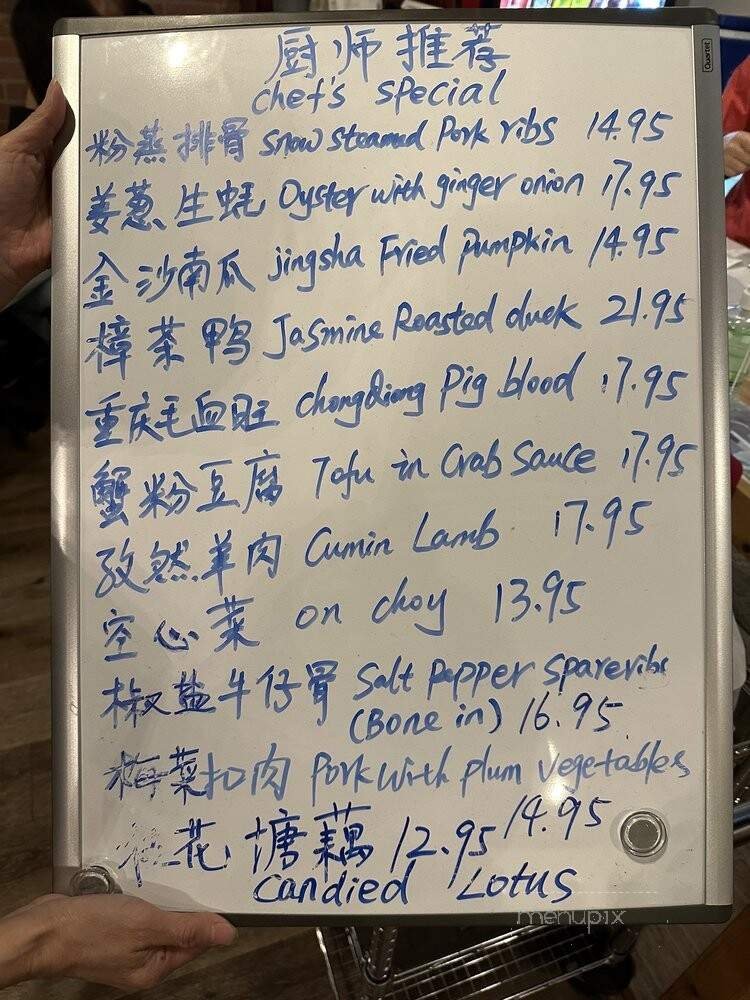 厨师推荐
chef's special
粉蒸排骨 snow steamed Pork ribs 14.95
姜葱生蚝 Oyster with ginger onion 17.95
金沙南瓜 jingsha Fried Pumpkin 14.95
樟茶鸭 Jasmine Roasted duck 21.95
重庆毛血旺 chongqiong Pig blood 17.95
蟹粉豆腐 Tofu in Crab Sauce 17.95
孜然羊肉 Cumin Lamb 17.95
空心菜 on choy 13.95
椒盐牛仔骨 Salt Pepper Spareribs
(Bone in) 16.95
梅菜扣肉 Pork with plum vegetables
14.95
桂花塘藕 12.95
Candied Lotus
Quartet
menupix